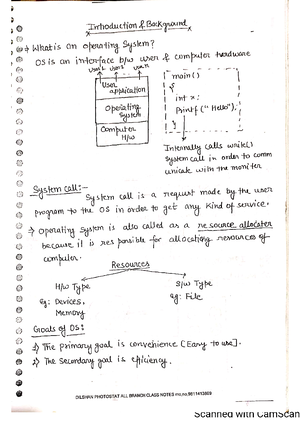 Introduction & Background
What is an operating System?
OS is an interface b/w user & computer hardware
user1 user2 usern
User
application
Operating
System
Computer
H/w
main()
{
int x;
Printf("Hello");
}
Internally calls write()
System call in order to comm
unicate with the monitor
System call:-
System call is a request made by the user
program to the OS in order to get any kind of service.
⇒ Operating System is also called as a resource allocater
because it is res ponsible for allocating resources of
computer.
Resources
H/w Type
S/w Type
eg: Devices,
Memory
eg: File
Goals of OS:
1) The primary goal is convenience [Easy to use].
2) The Secondary goal is efficiency.
DILSHAN PHOTOSTAT ALL BRANCH CLASS NOTES mo.no.9811413809
Scanned with CamScan